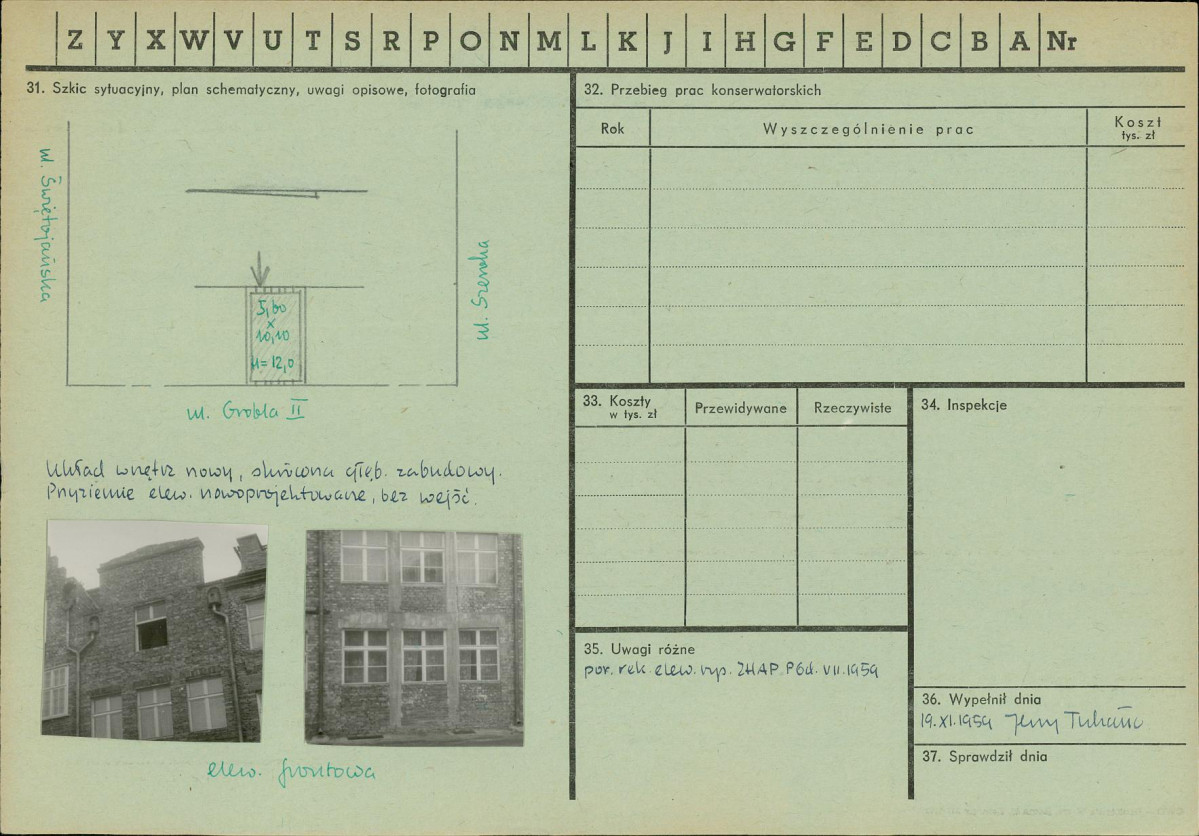 Z Y X W V U T S R P O N M L K J I H G F E D C B A Nr
31. Szkic sytuacyjny, plan schematyczny, uwagi opisowe, fotografia
ul. Świętojańska
ul. Szeroka
5,60
x
10,10
H=12,0
ul. Grobla II
Układ wnętrz nowy, skrócona głęb. zabudowy.
Przyziemie elew. nowoprojektowane, bez wejść.
elew. frontowa
32. Przebieg prac konserwatorskich
Rok
Wyszczególnienie prac
Koszt
tys. zł
33. Koszty
w tys. zł
Przewidywane
Rzeczywiste
34. Inspekcje
35. Uwagi różne
por. rek. elew. rys. ZHAP. PGd. VII.1959
36. Wypełnił dnia
19.XI.1959 Jerzy
37. Sprawdził dnia